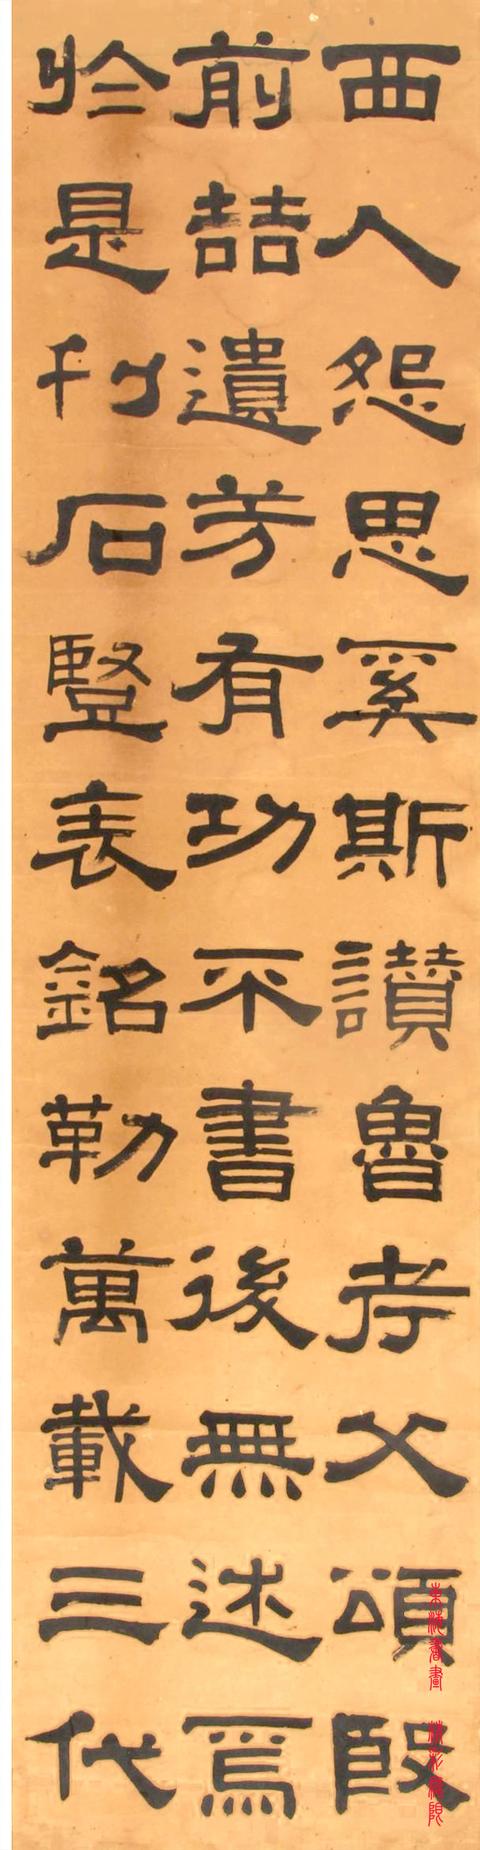 西人怨思奚斯讃魯考父頌殷
前喆遺芳有功不書後無述焉
於是刊石豎表銘勒萬載三代